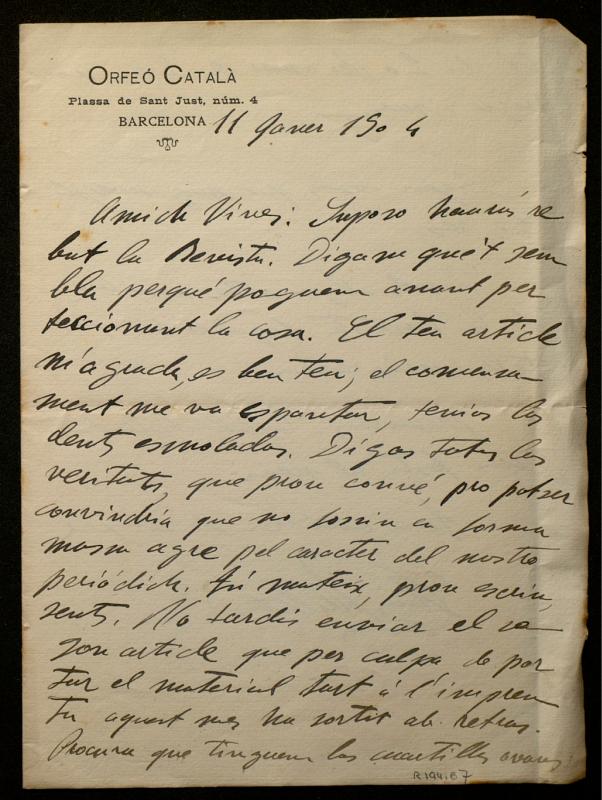 ORFEÓ CATALÀ
Plassa de Sant Just, núm. 4
BARCELONA 11 Janer 1904
Amich Vives: Suposo haurás re
but la Revista. Digam qué't sem
bla perqué poguem anant per
feccionant la cosa. El teu article
m'agrada, es ben teu; el comensa-
ment me va espantar, tenias las
dents esmoladas. Digas totas las
veritats, que prou convé, pro potser
convindria que no fossin en forma
massa agre pel caracter del nostre
periódich. Tú mateix, prou
sents. No tardis enviar el se
gon article que per culpa de por
tar el material tart á l'impren
ta aquest mes ha sortit ab retras.
Procura que tinguem las cuartillas avans
R.194.B7